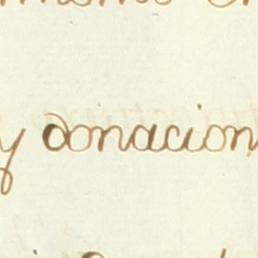 y donacion